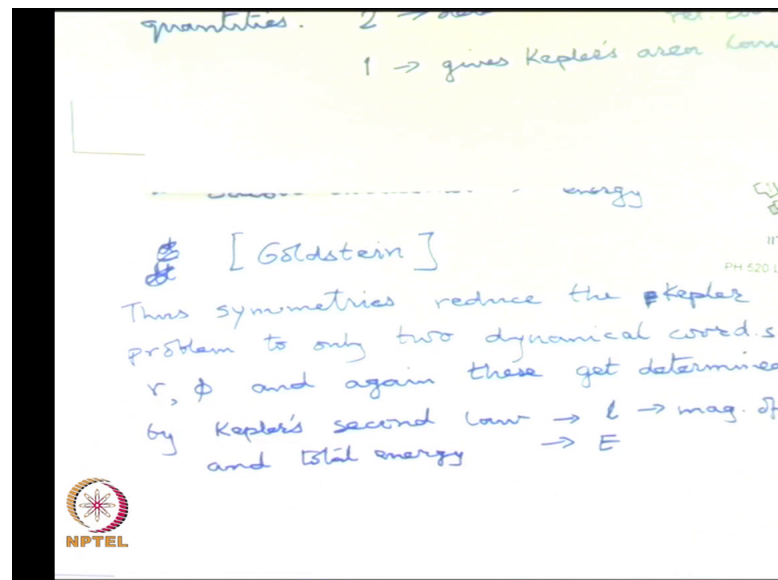 quantities. 2 →
1 → gives Kepler's area law
energy
[Goldstein]
PH 520 L
Thus symmetries reduce the Kepler
problem to only two dynamical coord.s
r, ϕ and again these get determined
by Kepler's second law → l → mag. of
and total energy → E
NPTEL